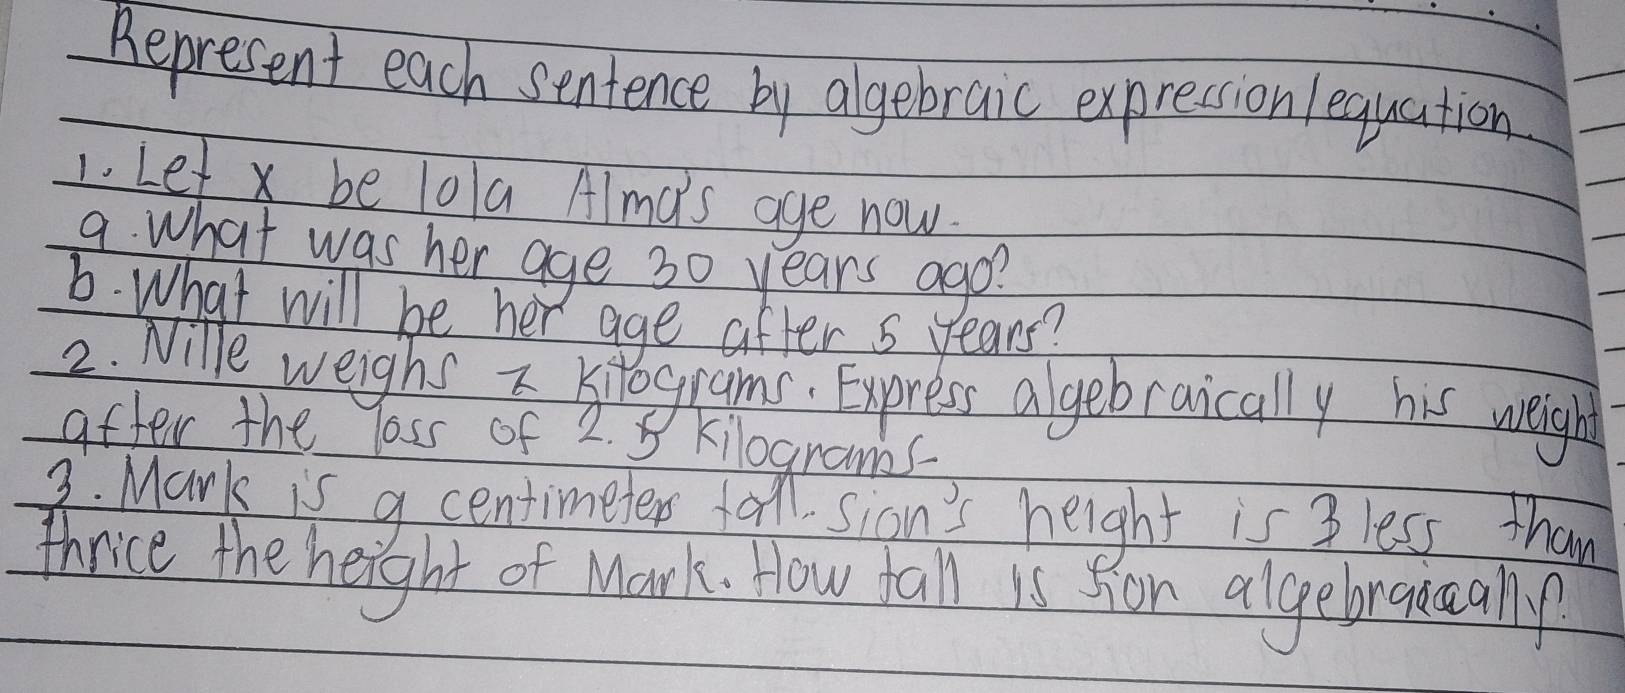 Represent each sentence by algebraic expression/equation.
1. Let x be lola Alma's age now.
a. What was her age 30 years ago?
b. What will be her age after 5 years?
2. Nille weighs z kilograms. Express algebraically his weight
after the loss of 2.5 kilograms.
3. Mark is a centimeters tall. Sion's height is 3 less than
thrice the height of Mark. How tall is Sion algebraically?